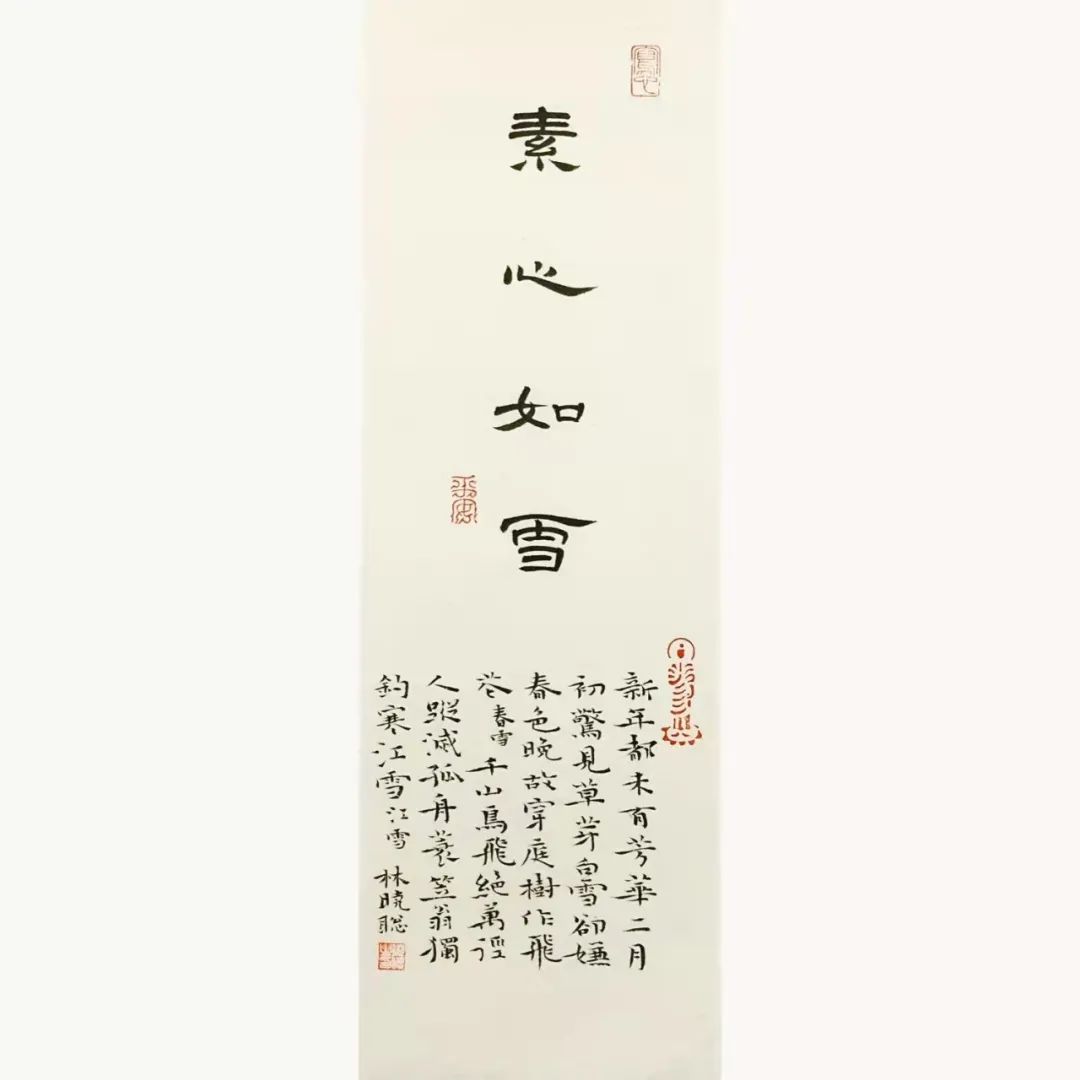 素心如雪
新年都未有芳華二月
初驚見草芽白雪卻嫌
春色晚故穿庭樹作飛
花春雪千山鳥飛絕萬徑
人蹤滅孤舟蓑笠翁獨
釣寒江雪江雪林曉聰
平安